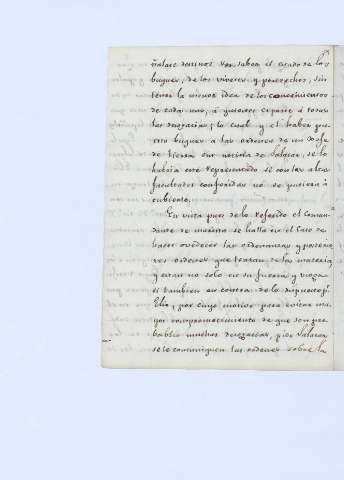 ñalase destinos sin saber el estado de los
buques, de los viveres y pertrechos, sin
tener la menor idea de los conocimientos
de cada uno, á quienes expone á todas
las desgracias; lo cual y el haber puesto
buques a las ordenes de un Gefe
de tierra sin noticia de
habria este representado si con las altas
facultades conferidas no se pusiera á
cubierto.
En vista pues de lo referido el Coman-
dante de marina se halla en el Caso de
hacer obedecer las ordenanzas y posterio-
res ordenes que tratan de la materia
y estan no solo en su fuerza y vigor
si tambien en contra de lo dispuesto pr
Elio, por cuyo motivo para evitar ma-
yor comprometimiento de que son pro-
bables muchas desgracias, pide Salazar
se le comuniquen las ordenes sobre la